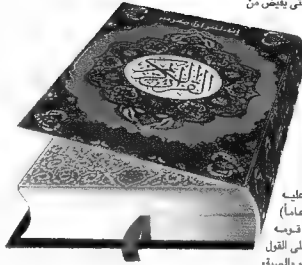 حتى يفيض من
إنه لقرآن كريم
القرآن الكريم
عليه
عاماً)
قومه
على القول